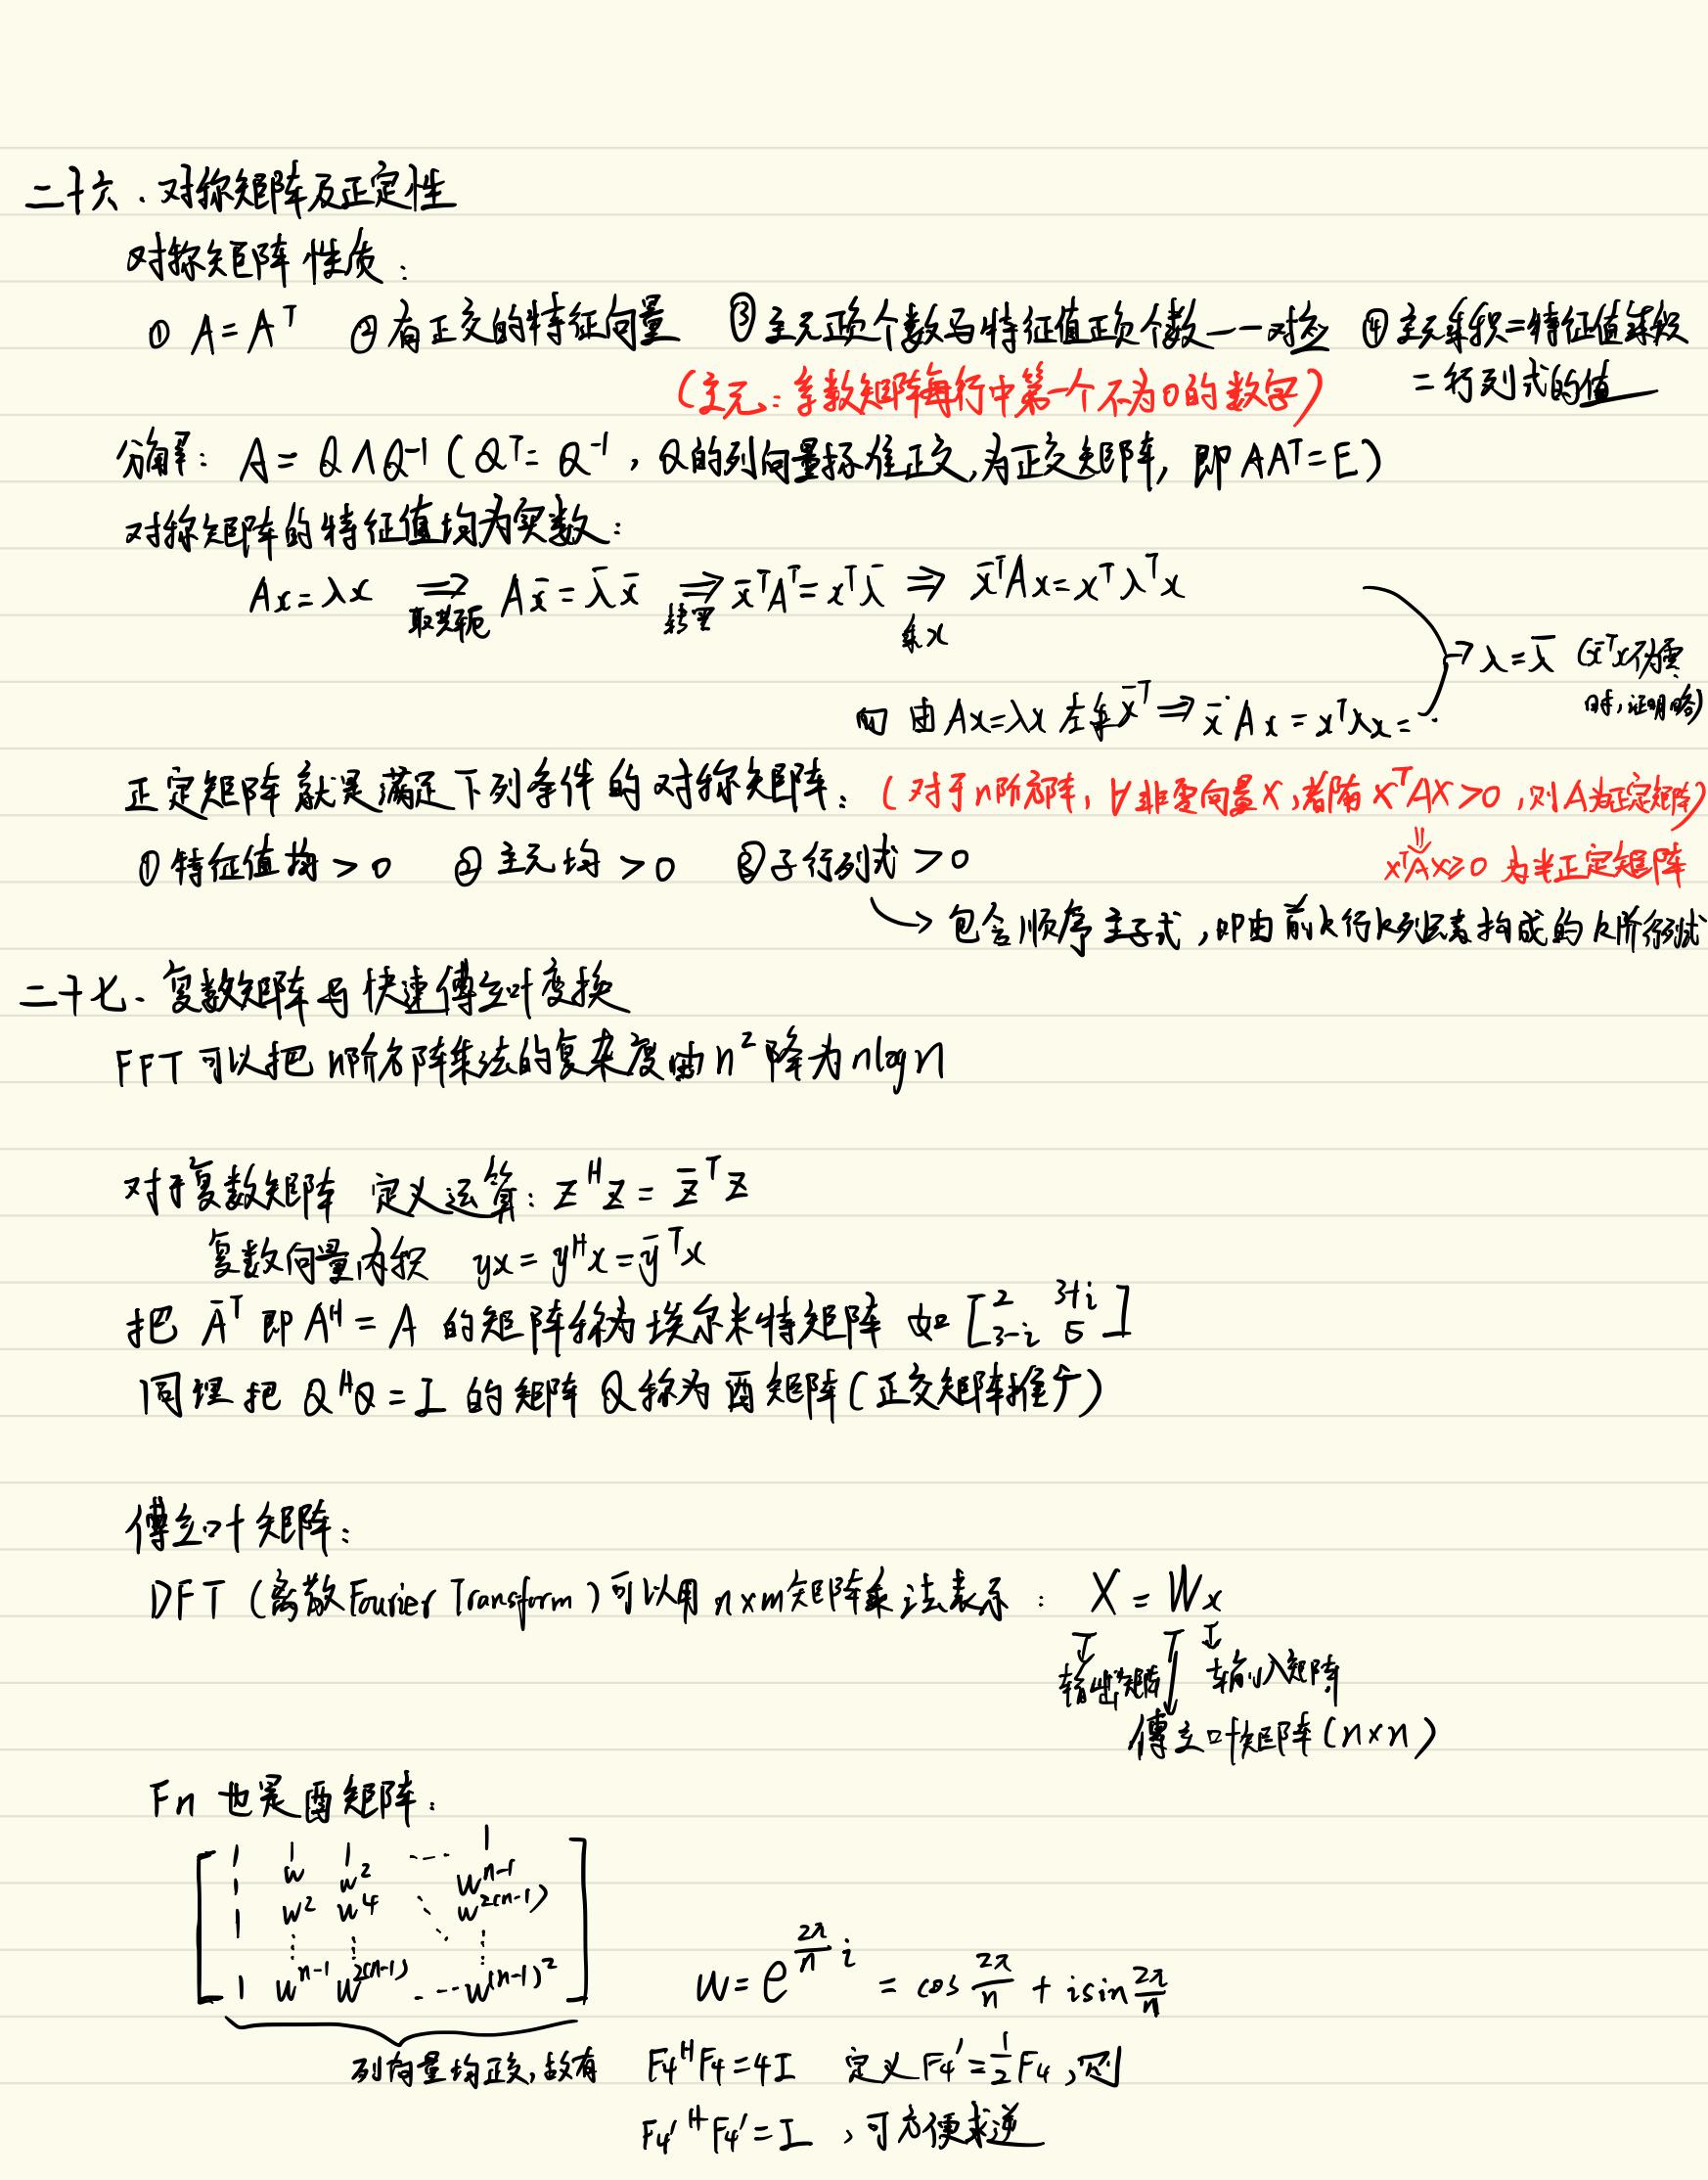 二十六．对称矩阵及正定性
对称矩阵性质：
① A=Aᵀ ②有正交的特征向量 ③主元正负个数与特征值正负个数一一对应 ④主元乘积=特征值乘积
=行列式的值
（主元：系数矩阵每行中第一个不为0的数字）
分解：A=QΛQ⁻¹（Qᵀ=Q⁻¹，Q的列向量标准正交,为正交矩阵, 即AAᵀ=E）
对称矩阵的特征值均为实数：
Ax=λx ⇒取共轭 Ax̄=λ̄x̄ ⇒转置 x̄ᵀAᵀ=xᵀλ̄ ⇒乘x x̄ᵀAx=xᵀλᵀx
→λ=λ̄ (x̄ᵀx不为零
时,证明略)
而由Ax=λx左乘x̄ᵀ⇒x̄ Ax=xᵀλx=…
正定矩阵就是满足下列条件的对称矩阵：（对于n阶方阵，∀非零向量X,都有XᵀAX>0，则A为正定矩阵）
①特征值均>0 ②主元均>0 ③子行列式>0
⇓
xᵀAx≥0 为半正定矩阵
→包含顺序主子式，即由前k行k列元素构成的k阶行列式
二十七．复数矩阵与快速傅立叶变换
FFT可以把n阶方阵乘法的复杂度由n²降为nlogn
对于复数矩阵 定义运算：zᴴz=z̄ᵀz
复数向量内积 yx=yᴴx=ȳᵀx
把 Āᵀ 即Aᴴ=A 的矩阵称为埃尔米特矩阵 如[2 3+i
3-i 5]
同理把QᴴQ=I的矩阵Q称为酉矩阵(正交矩阵推广)
傅立叶矩阵：
DFT (离散Fourier Transform)可以用n×m矩阵乘法表示：X=Wx
输出矩阵 输入矩阵
傅立叶矩阵(n×n)
Fn也是酉矩阵：
1 1 1 … 1
1 w w² wⁿ⁻¹
1 w² w⁴ ⋱ w²⁽ⁿ⁻¹⁾
⋮ ⋮ ⋱ ⋮
1 wⁿ⁻¹ w²⁽ⁿ⁻¹⁾ … w⁽ⁿ⁻¹⁾²
w=e^(2π/n i)=cos 2π/n + isin 2π/n
列向量均正交,故有 F₄ᴴF₄=4I 定义F₄′=½F₄，则
F₄′ᴴF₄′=I，可方便求逆